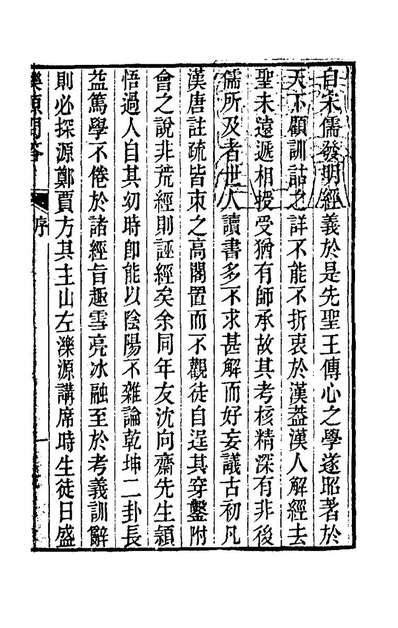 自宋儒發明經義於是先聖王傳心之學遂昭著於
天下顧訓詁之詳不能不折衷於漢葢漢人解經去
聖未遠遞相授受猶有師承故其考核精深有非後
儒所及者世人讀書多不求甚解而好妄議古初凡
漢唐註疏皆束之高閣置而不觀徒自逞其穿鑿附
會之說非荒經則誣經矣余同年友沈向齋先生頴
悟過人自其幼時卽能以陰陽不雜論乾坤二卦長
益篤學不倦於諸經旨趣雪亮冰融至於考義訓辭
則必探源鄭賈方其主山左濼源講席時生徒日盛
濼源問答
序
一